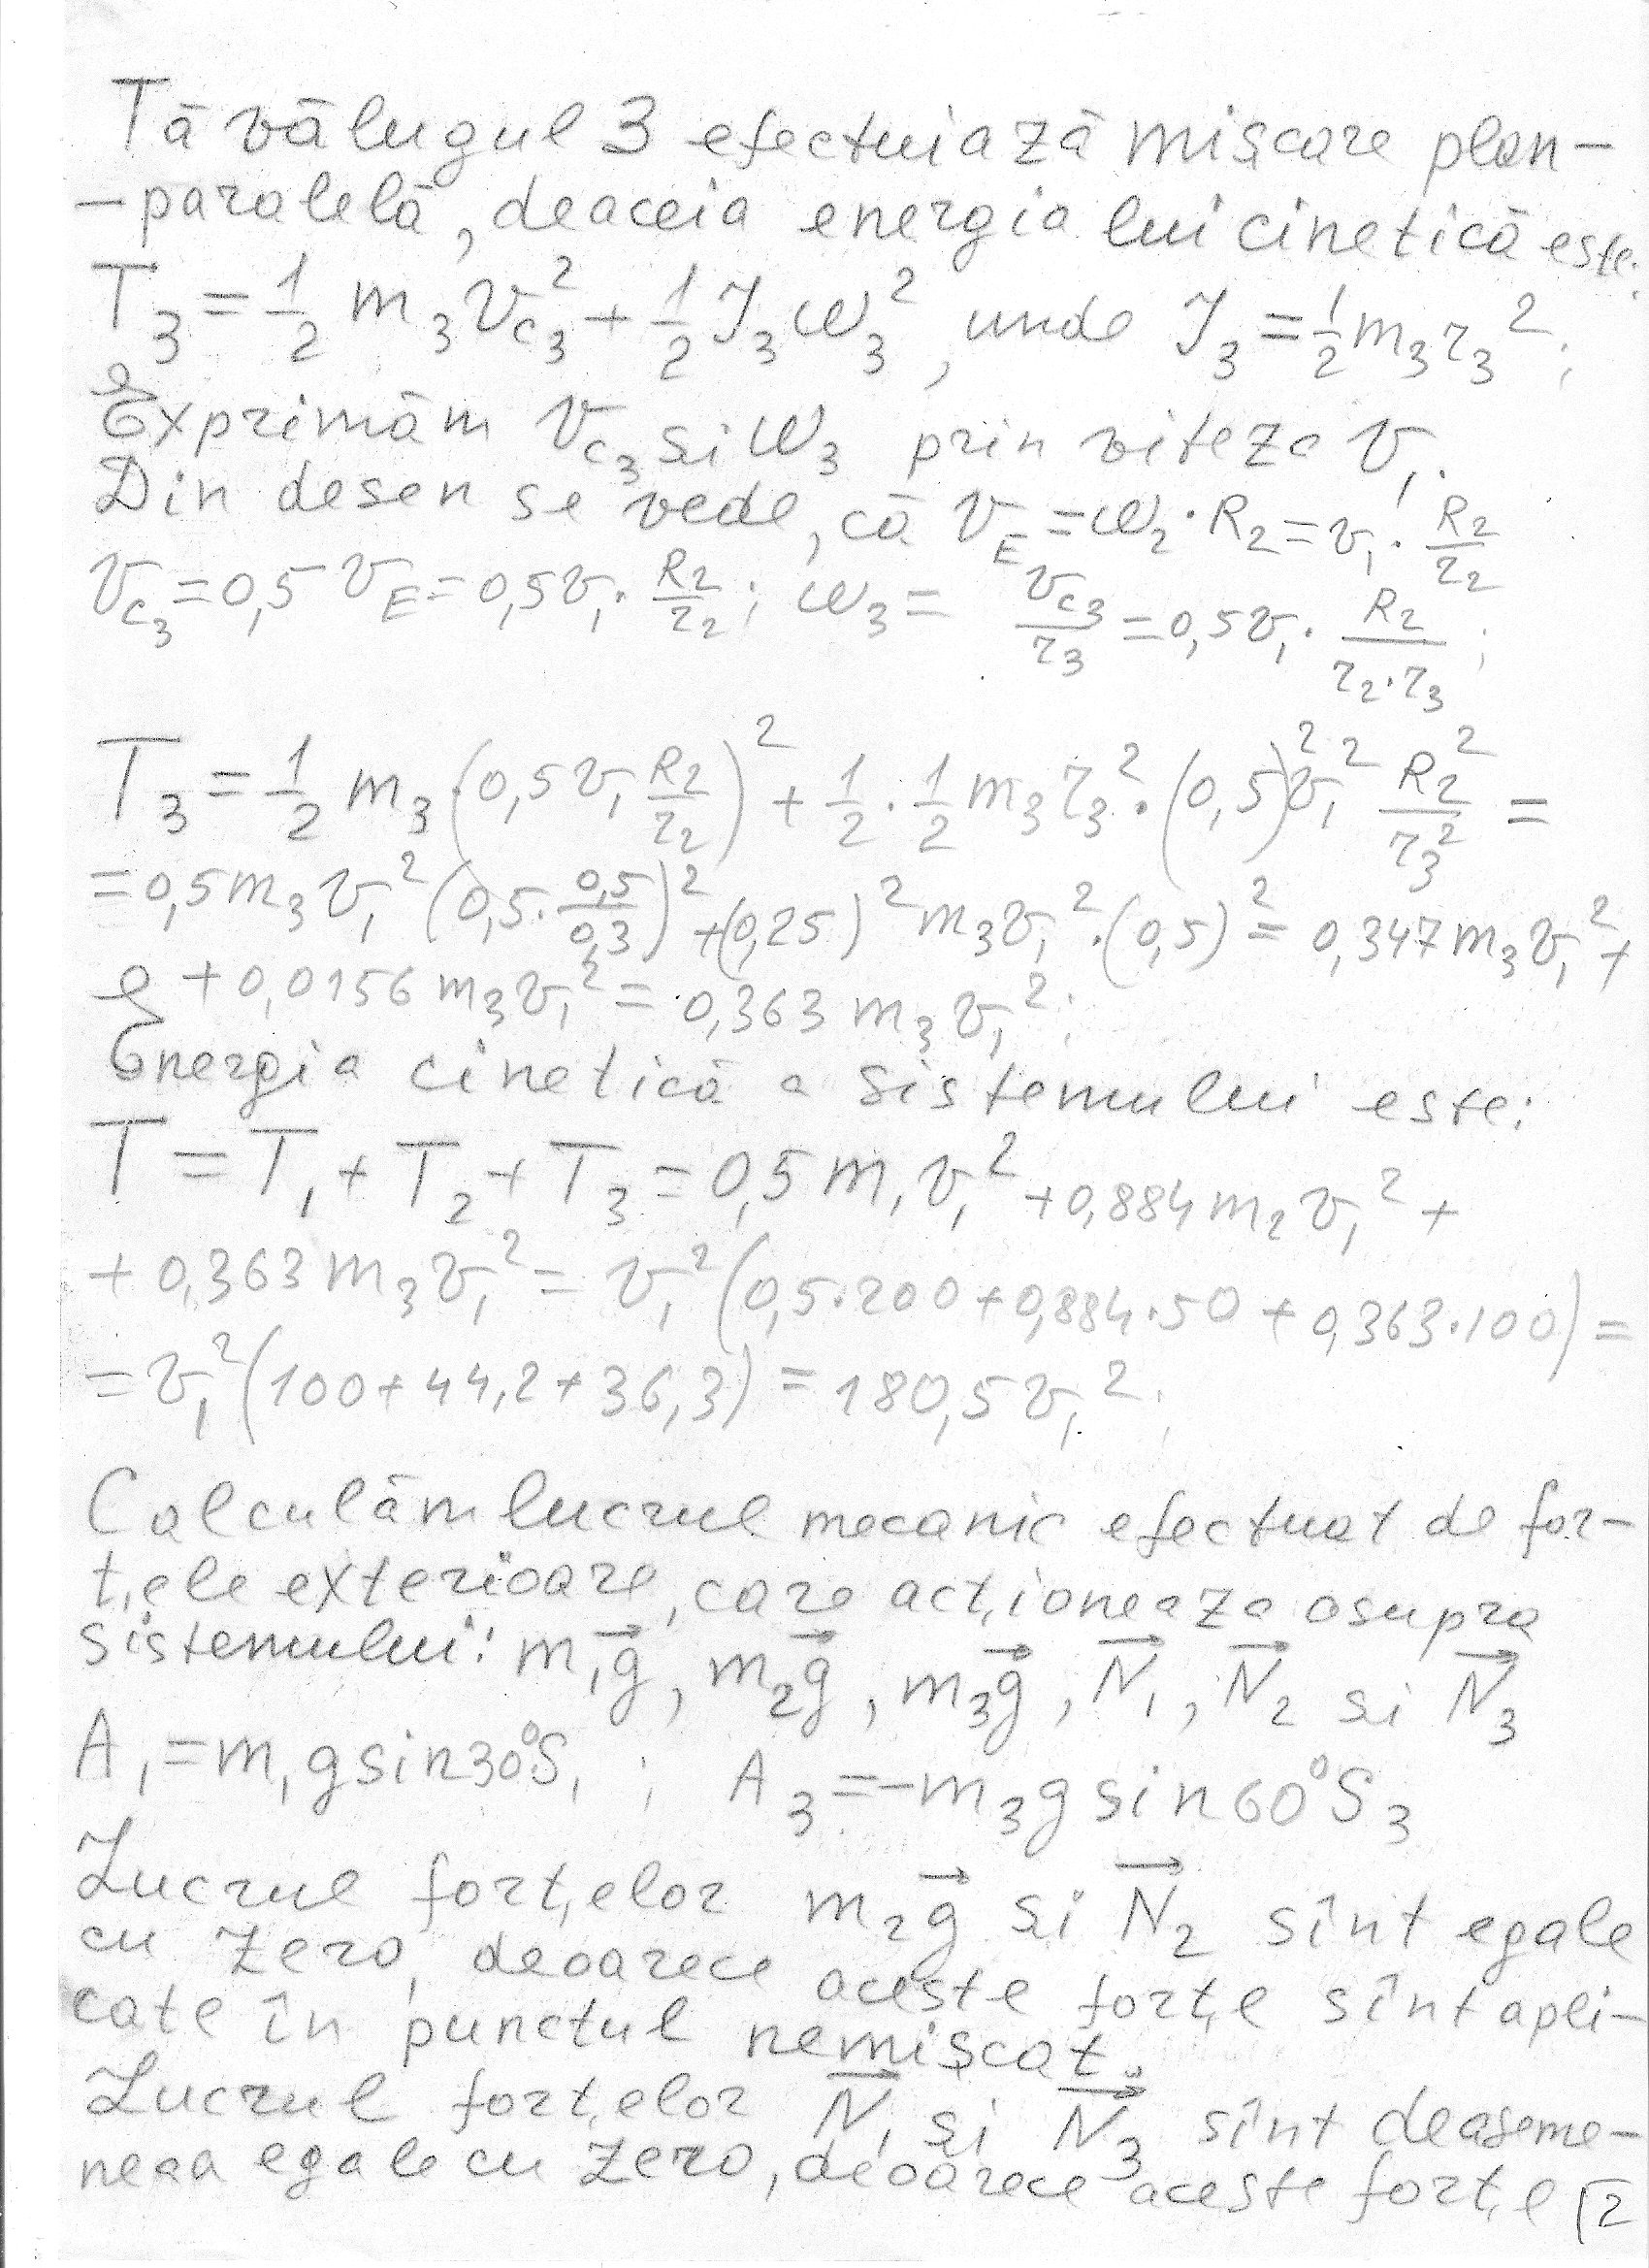 Tăvălugul 3 efectuiază mișcare plan-
-paralelă, deaceia energia lui cinetică este:
T₃ = 1/2 m₃v_C₃² + 1/2 J₃ω₃², unde J₃ = 1/2 m₃r₃²;
Exprimăm v_C₃ și ω₃ prin viteza v₁.
Din desen se vede, că v_E = ω₂·R₂ = v₁·R₂/r₂
v_C₃ = 0,5 v_E = 0,5v₁·R₂/r₂; ω₃ = v_C₃/r₃ = 0,5v₁·R₂/(r₂·r₃);
T₃ = 1/2 m₃·(0,5v₁ R₂/r₂)² + 1/2·1/2 m₃r₃²·(0,5)²v₁² R₂²/r₃² =
= 0,5m₃v₁²(0,5·0,5/0,3)² + (0,25)²m₃v₁²·(0,5)² = 0,347m₃v₁² +
+ 0,0156m₃v₁² = 0,363m₃v₁²;
Energia cinetică a sistemului este:
T = T₁ + T₂ + T₃ = 0,5m₁v₁² + 0,884m₂v₁² +
+ 0,363m₃v₁² = v₁²(0,5·200 + 0,884·50 + 0,363·100) =
= v₁²(100 + 44,2 + 36,3) = 180,5v₁²;
Calculăm lucrul mecanic efectuat de for-
țele exterioare, care acționeaza asupra
sistemului: m₁g⃗, m₂g⃗, m₃g⃗, N⃗₁, N⃗₂ și N⃗₃
A₁ = m₁gsin30°S₁; A₃ = -m₃gsin60°S₃
Lucrul forțelor m₂g⃗ și N⃗₂ sînt egale
cu zero, deoarece aceste forțe sînt apli-
cate în punctul nemișcat.
Lucrul forțelor N⃗₁ și N⃗₃ sînt deaseme-
neaa egale cu zero, deoarece aceste forțe 2